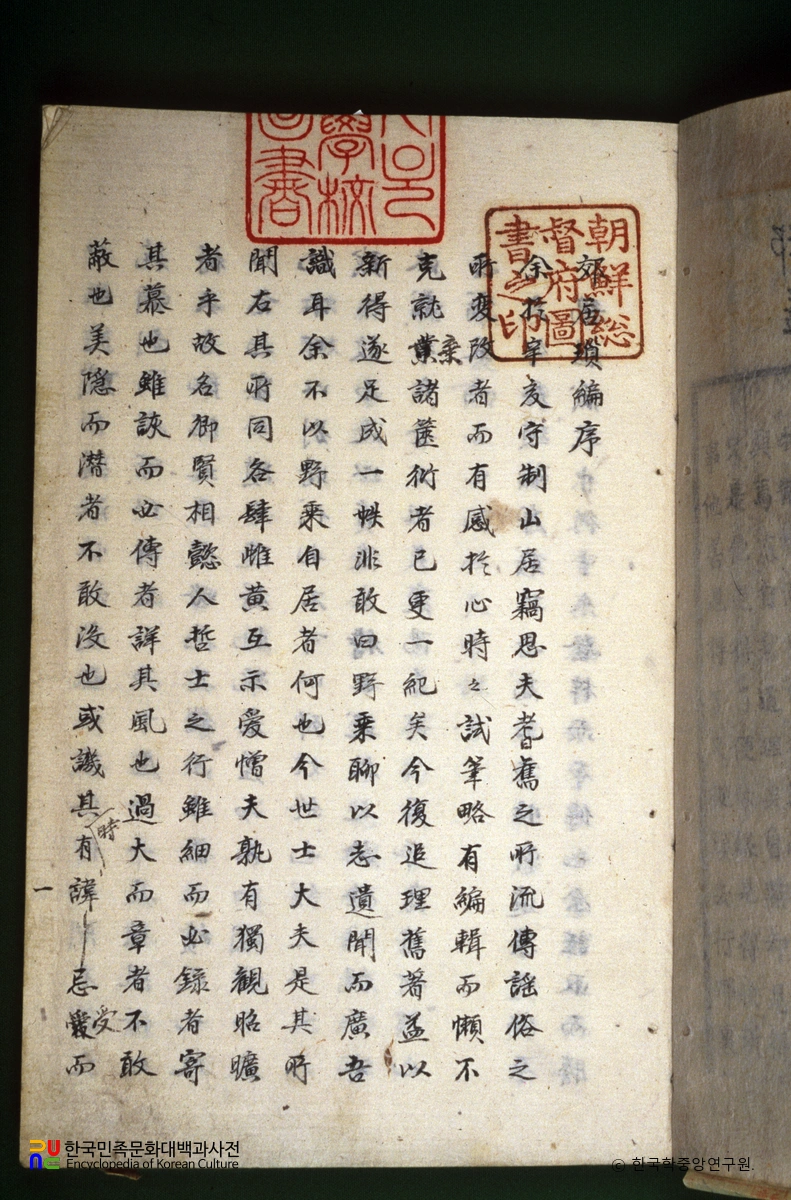 郊居瑣編序
余於辛亥守制山居竊思夫耆舊之所流傳謠俗之
所変改者而有感於心時々試筆略有編輯而懶不
克就業棄諸篋衍者已更一紀矣今復追理舊著益以
新得遂足成一帙非敢曰野乘聊以志遺聞而廣吾
識耳余不以野乘自居者何也今世士大夫是其所
聞右其所同各肆雌黃互示愛憎夫孰有獨觀昭曠
者乎故名卿賢相懿人哲士之行雖細而必錄者寄
其慕也雖詼而必傳者詳其風也過大而章者不敢
蔽也美隱而潛者不敢沒也或譏其時有諱忌受而
一
朝鮮総
督府圖
書之印
學校
書
한국민족문화대백과사전
Encyclopedia of Korean Culture
ⓒ 한국학중앙연구원.